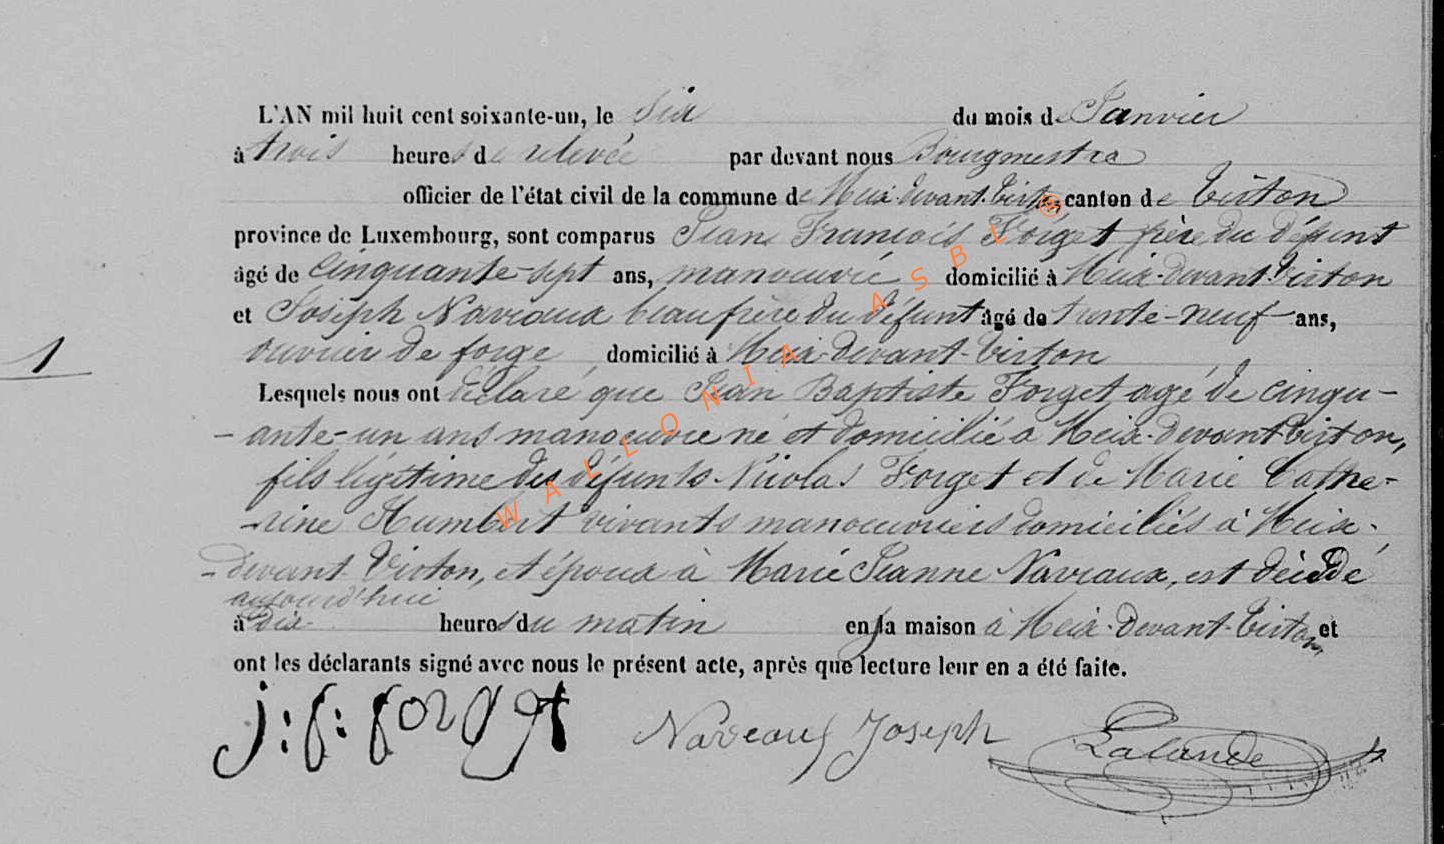 L'AN mil huit cent soixante-un, le Six du mois de Janvier
à trois heures de relevée par devant nous Bourgmestre
officier de l'état civil de la commune de Meix-devant-Virton canton de Virton
province de Luxembourg, sont comparus Jean François Forget frère du défunt
âgé de cinquante-sept ans, manoeuvre domicilié à Meix-Devant-Virton
et Joseph Naveaux beau frère du défunt âgé de trente-neuf ans,
ouvrier de forge domicilié à Meix-Devant-Virton
1
Lesquels nous ont déclaré que Jean Baptiste Forget agé de cinqu-
-ante-un ans manoeuvre né et domicilié à Meix-Devant Virton,
fils légitime des défunts Nicolas Forget et de Marie Cathe-
-rine Humbert vivants manoeuvriers domiciliés à Meix-
-devant Virton, et époux à Marie Jeanne Naveaux, est décédé
aujourd'hui
à dix heures du matin en sa maison à Meix-Devant-Virton et
ont les déclarants signé avec nous le présent acte, après que lecture leur en a été faite.
j:f: forget Naveaux Joseph Lalande
WALLONIA ASBL ©